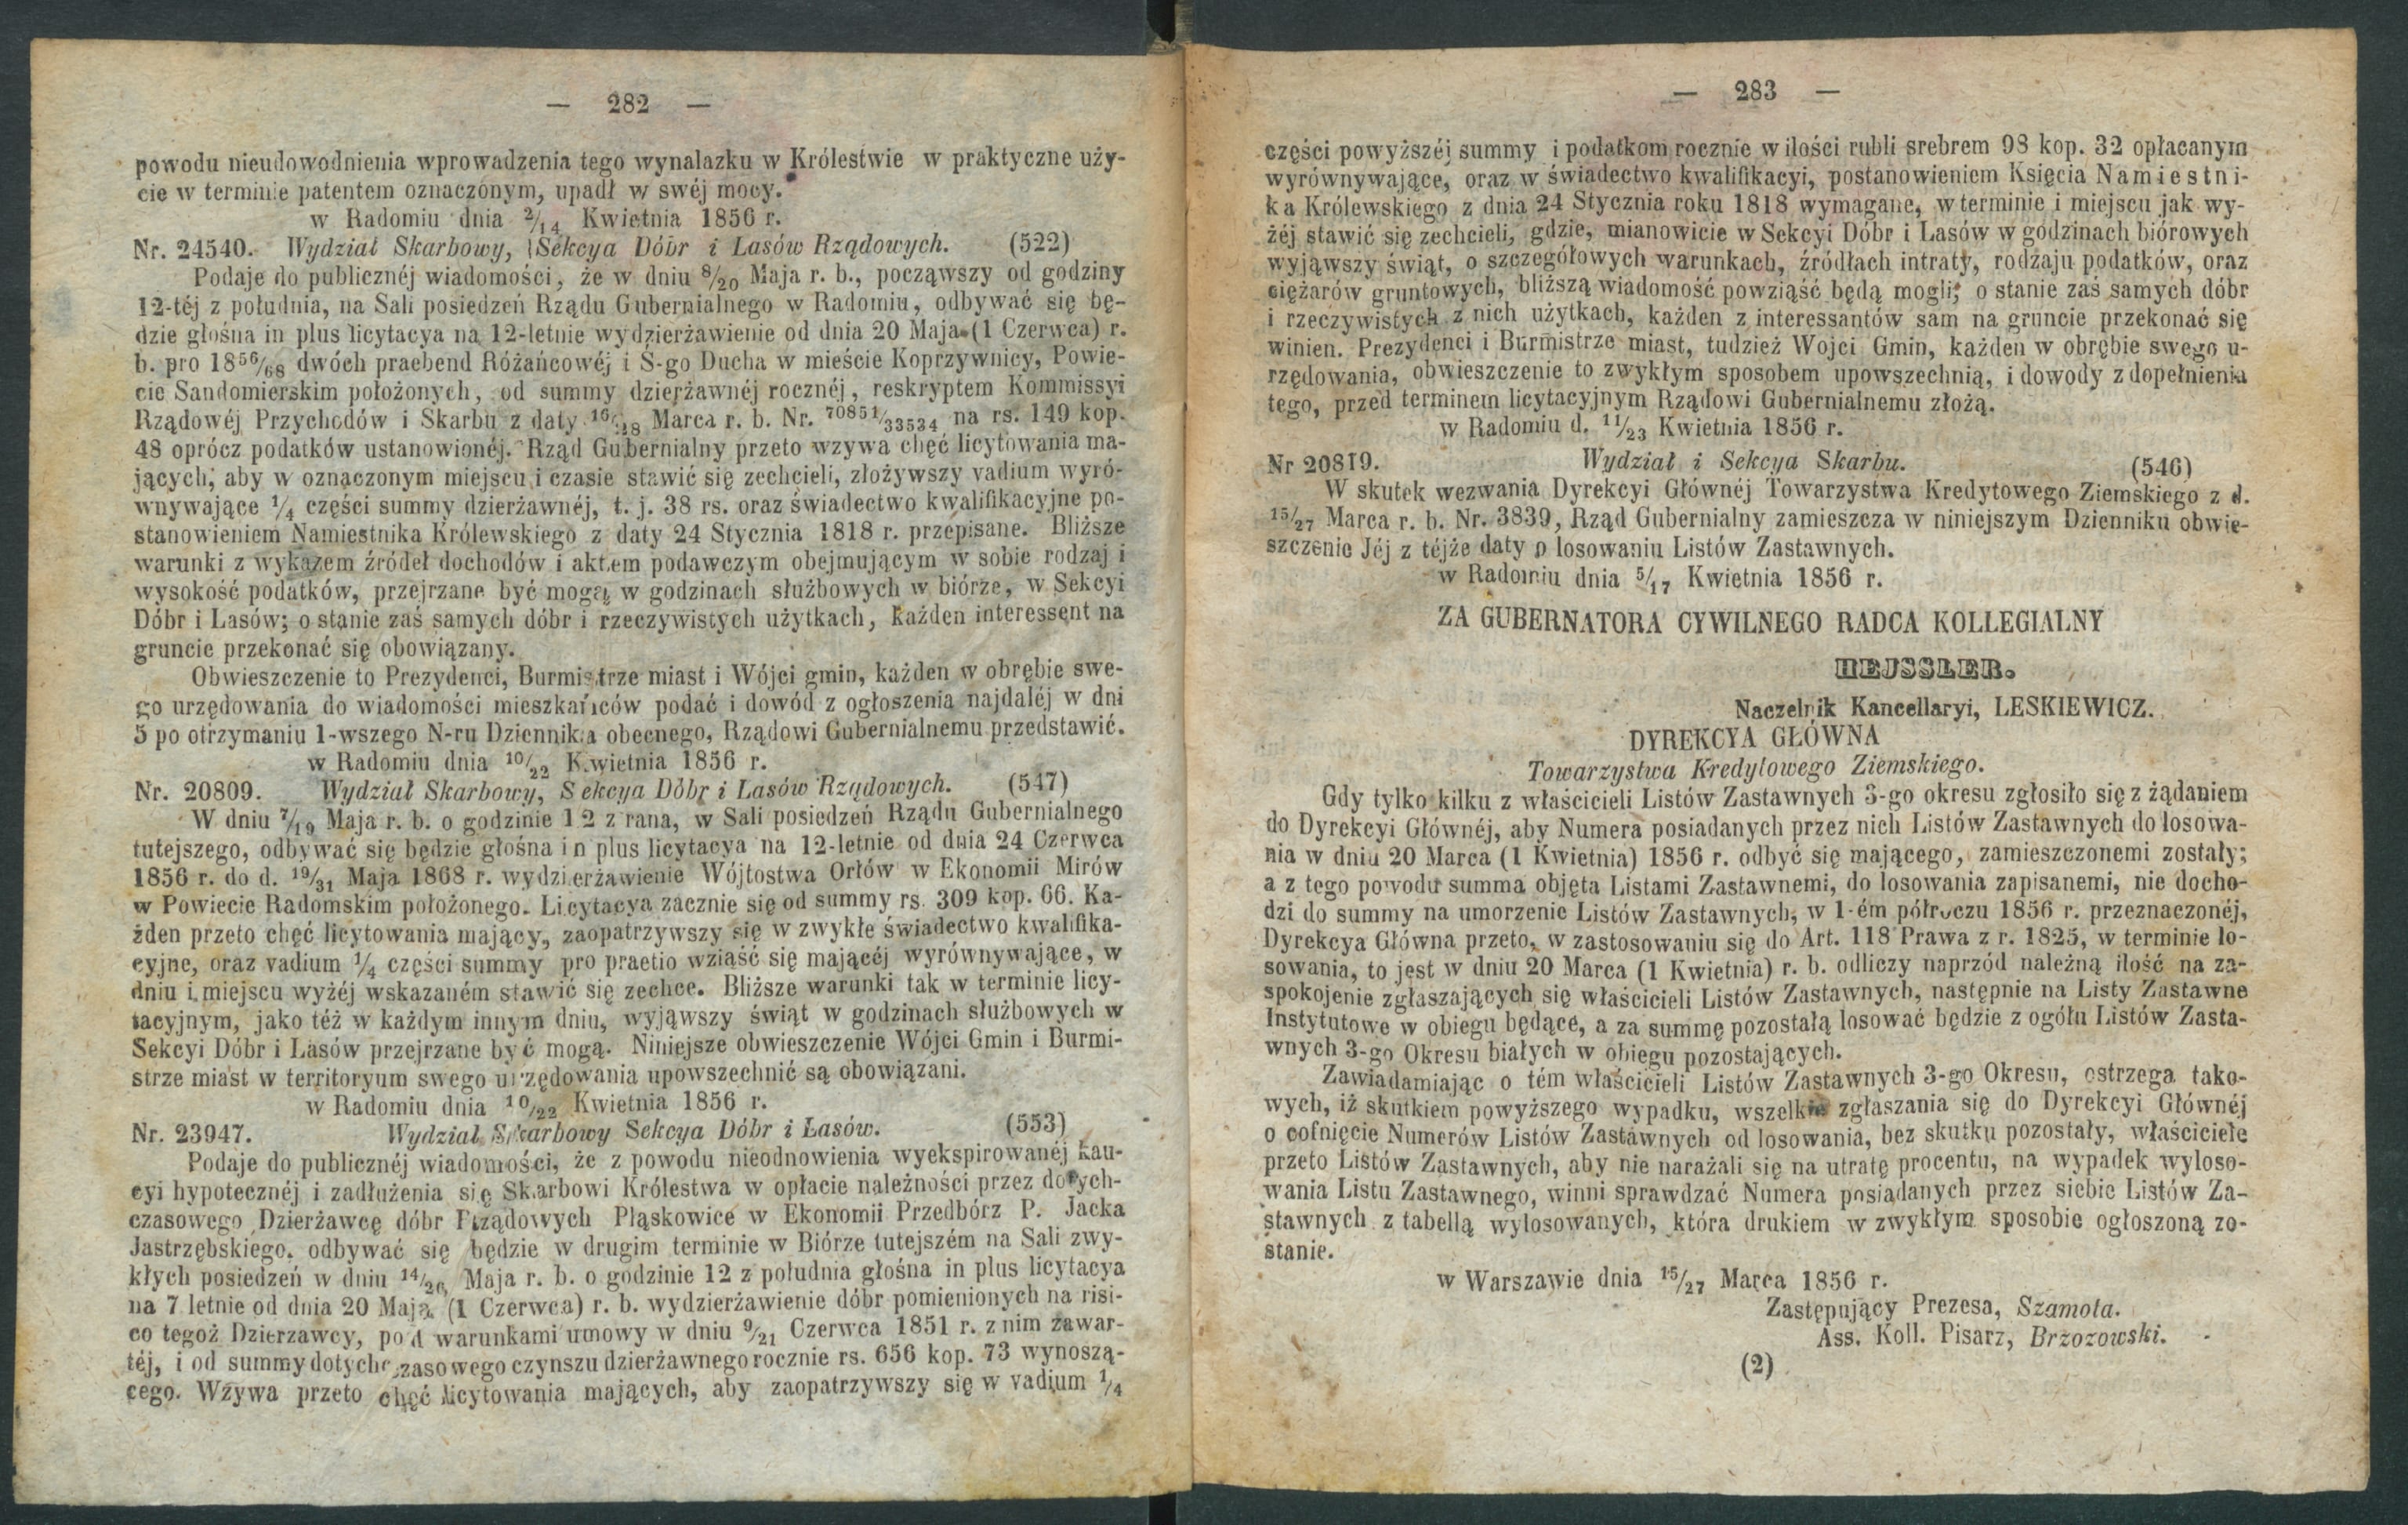 — 282 —
powodu nieudowodnienia wprowadzenia tego wynalazku w Królestwie w praktyczne uży-
cie w terminie patentem oznaczonym, upadł w swéj mocy.
w Radomiu dnia 2/14 Kwietnia 1856 r.
Nr. 24540. Wydział Skarbowy, Sekcya Dóbr i Lasów Rządowych. (522)
Podaje do publicznéj wiadomości, że w dniu 8/20 Maja r. b., począwszy od godziny
12-téj z południa, na Sali posiedzeń Rządu Gubernialnego w Radomiu, odbywać się bę-
dzie głośna in plus licytacya na 12-letnie wydzierżawienie od dnia 20 Maja (1 Czerwca) r.
b. pro 1856/68 dwóch praebend Różańcowéj i S-go Ducha w mieście Koprzywnicy, Powie-
cie Sandomierskim położonych, od summy dzierżawnéj rocznéj, reskryptem Kommissyi
Rządowéj Przychodów i Skarbu z daty 16/28 Marca r. b. Nr. 70851/33534 na rs. 149 kop.
48 oprócz podatków ustanowionéj. Rząd Gubernialny przeto wzywa chęć licytowania ma-
jących, aby w oznaczonym miejscu i czasie stawić się zechcieli, złożywszy vadium wyró-
wnywające 1/4 części summy dzierżawnéj, t. j. 38 rs. oraz świadectwo kwalifikacyjne po-
stanowieniem Namiestnika Królewskiego z daty 24 Stycznia 1818 r. przepisane. Bliższe
warunki z wykazem źródeł dochodów i aktem podawczym obejmującym w sobie rodzaj i
wysokość podatków, przejrzane być mogą w godzinach służbowych w biórze, w Sekcyi
Dóbr i Lasów; o stanie zaś samych dóbr i rzeczywistych użytkach, każden interessent na
gruncie przekonać się obowiązany.
Obwieszczenie to Prezydenci, Burmistrze miast i Wójci gmin, każden w obrębie swe-
go urzędowania do wiadomości mieszkańców podać i dowód z ogłoszenia najdaléj w dni
5 po otrzymaniu 1-wszego N-ru Dziennika obecnego, Rządowi Gubernialnemu przedstawić.
w Radomiu dnia 10/22 Kwietnia 1856 r.
Nr. 20809. Wydział Skarbowy, Sekcya Dóbr i Lasów Rządowych. (547)
W dniu 7/19 Maja r. b. o godzinie 12 z rana, w Sali posiedzeń Rządu Gubernialnego
tutejszego, odbywać się będzie głośna in plus licytacya na 12-letnie od dnia 24 Czerwca
1856 r. do d. 19/31 Maja 1868 r. wydzierżawienie Wójtostwa Orłów w Ekonomii Mirów
w Powiecie Radomskim położonego. Licytacya zacznie się od summy rs. 309 kop. 66. Ka-
żden przeto chęć licytowania mający, zaopatrzywszy się w zwykłe świadectwo kwalifika-
cyjne, oraz vadium 1/4 części summy pro praetio wziąść się mającéj wyrównywające, w
dniu i miejscu wyżéj wskazaném stawić się zechce. Bliższe warunki tak w terminie licy-
tacyjnym, jako téż w każdym innym dniu, wyjąwszy świąt w godzinach służbowych w
Sekcyi Dóbr i Lasów przejrzane być mogą. Niniejsze obwieszczenie Wójci Gmin i Burmi-
strze miast w territoryum swego urzędowania upowszechnić są obowiązani.
w Radomiu dnia 10/22 Kwietnia 1856 r.
Nr. 23947. Wydział Skarbowy Sekcya Dóbr i Lasów. (553)
Podaje do publicznéj wiadomości, że z powodu nieodnowienia wyekspirowanéj kau-
cyi hypotecznéj i zadłużenia się Skarbowi Królestwa w opłacie należności przez dotych-
czasowego Dzierżawcę dóbr Rządowych Pląskowice w Ekonomii Przedbórz P. Jacka
Jastrzębskiego, odbywać się będzie w drugim terminie w Biórze tutejszém na Sali zwy-
kłych posiedzeń w dniu 14/26 Maja r. b. o godzinie 12 z południa głośna in plus licytacya
na 7 letnie od dnia 20 Maja (1 Czerwca) r. b. wydzierżawienie dóbr pomienionych na risi-
co tegoż Dzierzawcy, pod warunkami umowy w dniu 9/21 Czerwca 1851 r. z nim zawar-
téj, i od summy dotychczasowego czynszu dzierżawnego rocznie rs. 656 kop. 73 wynoszą-
cego. Wzywa przeto chęć licytowania mających, aby zaopatrzywszy się w vadium 1/4
— 283 —
części powyższéj summy i podatkom rocznie w ilości rubli srebrem 98 kop. 32 opłacanym
wyrównywające, oraz w świadectwo kwalifikacyi, postanowieniem Księcia Namiestni-
ka Królewskiego z dnia 24 Stycznia roku 1818 wymagane, w terminie i miejscu jak wy-
żéj stawić się zechcieli, gdzie, mianowicie w Sekcyi Dóbr i Lasów w godzinach biórowych
wyjąwszy świąt, o szczegółowych warunkach, źródłach intraty, rodzaju podatków, oraz
ciężarów gruntowych, bliższą wiadomość powziąść będą mogli; o stanie zaś samych dóbr
i rzeczywistych z nich użytkach, każden z interessantów sam na gruncie przekonać się
winien. Prezydenci i Burmistrze miast, tudzież Wojci Gmin, każden w obrębie swego u-
rzędowania, obwieszczenie to zwykłym sposobem upowszechnią, i dowody z dopełnienia
tego, przed terminem licytacyjnym Rządowi Gubernialnemu złożą.
w Radomiu d. 11/23 Kwietnia 1856 r.
Nr 20819. Wydział i Sekcya Skarbu. (546)
W skutek wezwania Dyrekcyi Głównéj Towarzystwa Kredytowego Ziemskiego z d.
15/27 Marca r. b. Nr. 3839, Rząd Gubernialny zamieszcza w niniejszym Dzienniku obwie-
szczenie Jéj z téjże daty o losowaniu Listów Zastawnych.
w Radomiu dnia 5/17 Kwietnia 1856 r.
ZA GUBERNATORA CYWILNEGO RADCA KOLLEGIALNY
HEJSSLER.
Naczelnik Kancellaryi, LESKIEWICZ.
DYREKCYA GŁÓWNA
Towarzystwa Kredytowego Ziemskiego.
Gdy tylko kilku z właścicieli Listów Zastawnych 3-go okresu zgłosiło się z żądaniem
do Dyrekcyi Głównéj, aby Numera posiadanych przez nich Listów Zastawnych do losowa-
nia w dniu 20 Marca (1 Kwietnia) 1856 r. odbyć się mającego, zamieszczonemi zostały;
a z tego powodu summa objęta Listami Zastawnemi, do losowania zapisanemi, nie docho-
dzi do summy na umorzenie Listów Zastawnych, w 1-ém półroczu 1856 r. przeznaczonéj,
Dyrekcya Główna przeto, w zastosowaniu się do Art. 118 Prawa z r. 1825, w terminie lo-
sowania, to jest w dniu 20 Marca (1 Kwietnia) r. b. odliczy naprzód należną ilość na za-
spokojenie zgłaszających się właścicieli Listów Zastawnych, następnie na Listy Zastawne
Instytutowe w obiegu będące, a za summę pozostałą losować będzie z ogółu Listów Zasta-
wnych 3-go Okresu białych w obiegu pozostających.
Zawiadamiając o tém właścicieli Listów Zastawnych 3-go Okresu, ostrzega tako-
wych, iż skutkiem powyższego wypadku, wszelkie zgłaszania się do Dyrekcyi Głównéj
o cofnięcie Numerów Listów Zastawnych od losowania, bez skutku pozostały, właściciele
przeto Listów Zastawnych, aby nie narażali się na utratę procentu, na wypadek wyloso-
wania Listu Zastawnego, winni sprawdzać Numera posiadanych przez siebie Listów Za-
stawnych z tabellą wylosowanych, która drukiem w zwykłym sposobie ogłoszoną zo-
stanie.
w Warszawie dnia 15/27 Marca 1856 r.
Zastępujący Prezesa, Szamota.
Ass. Koll. Pisarz, Brzozowski.
(2)